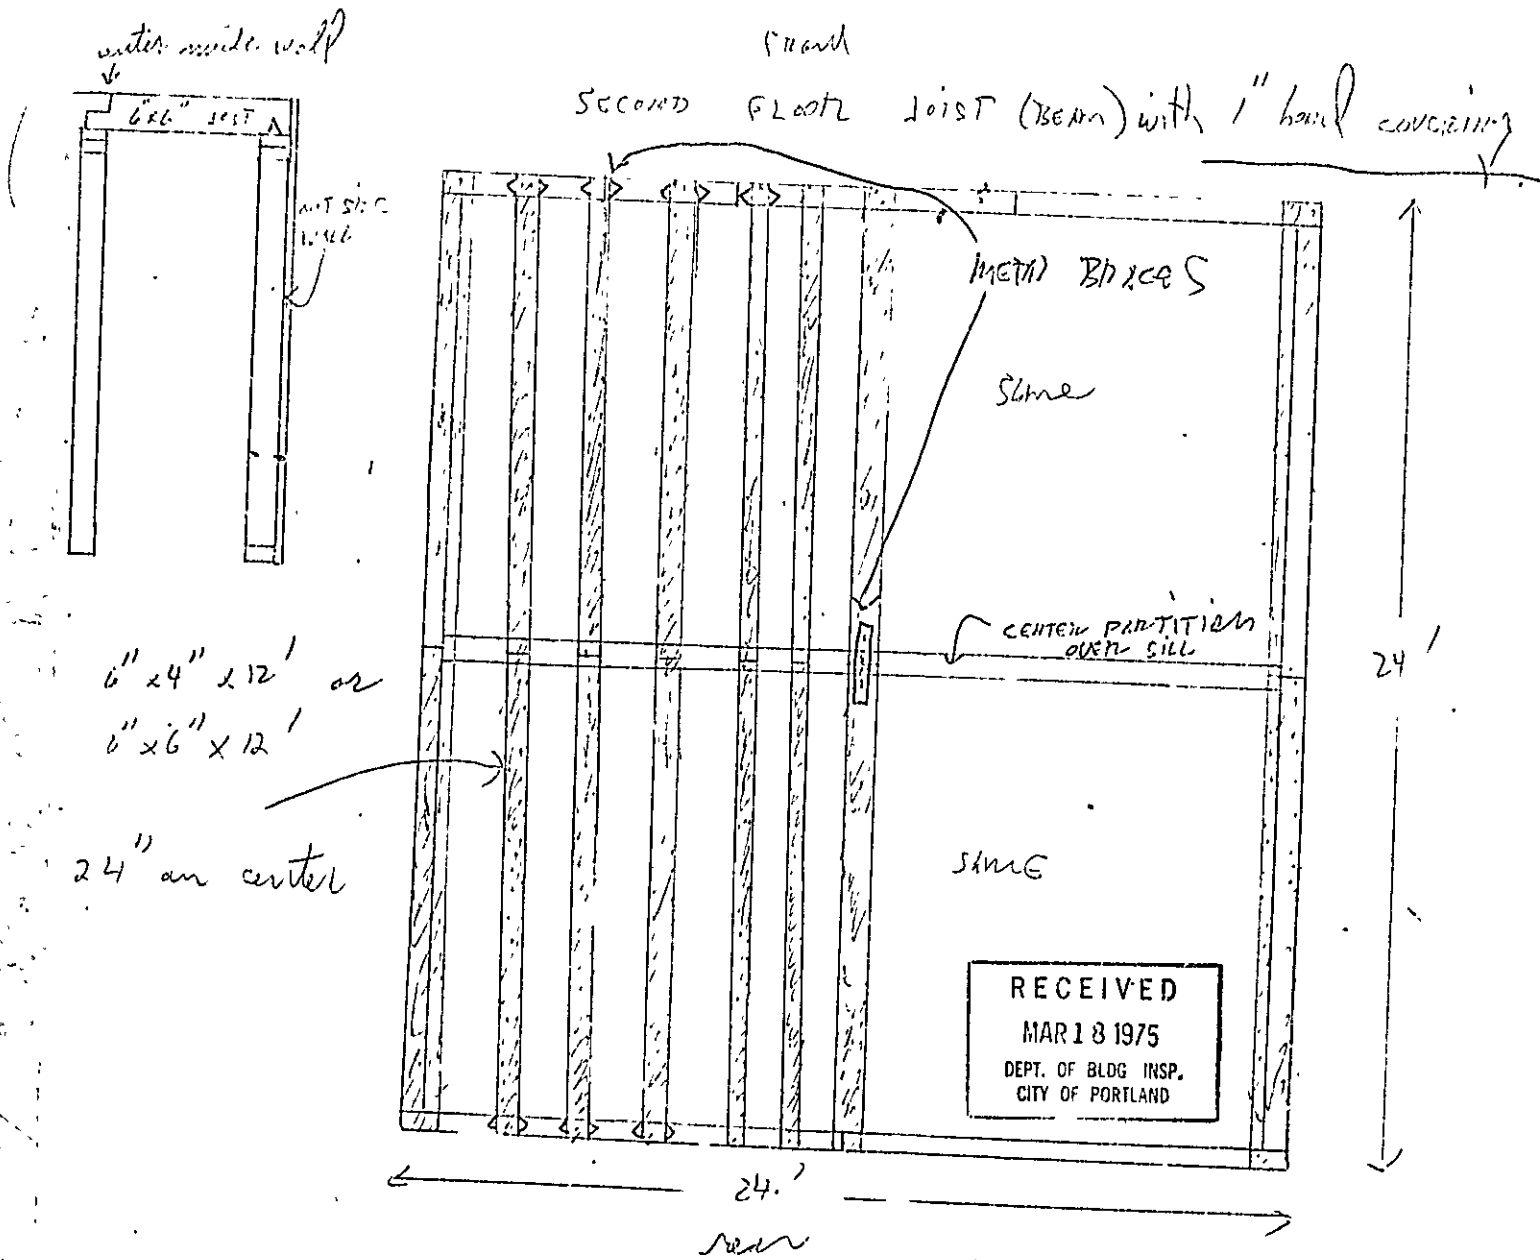 center inside wall
6"x6" JOIST
OUT SIDE
WALL
FRONT
SECOND FLOOR JOIST (BEAM) with 1" board covering
METAL BRACES
Same
CENTER PARTITION
OVER SILL
24'
6"x4"x12' or
6"x6"x12'
24" on center
SAME
RECEIVED
MAR 18 1975
DEPT. OF BLDG INSP.
CITY OF PORTLAND
24.'
rear